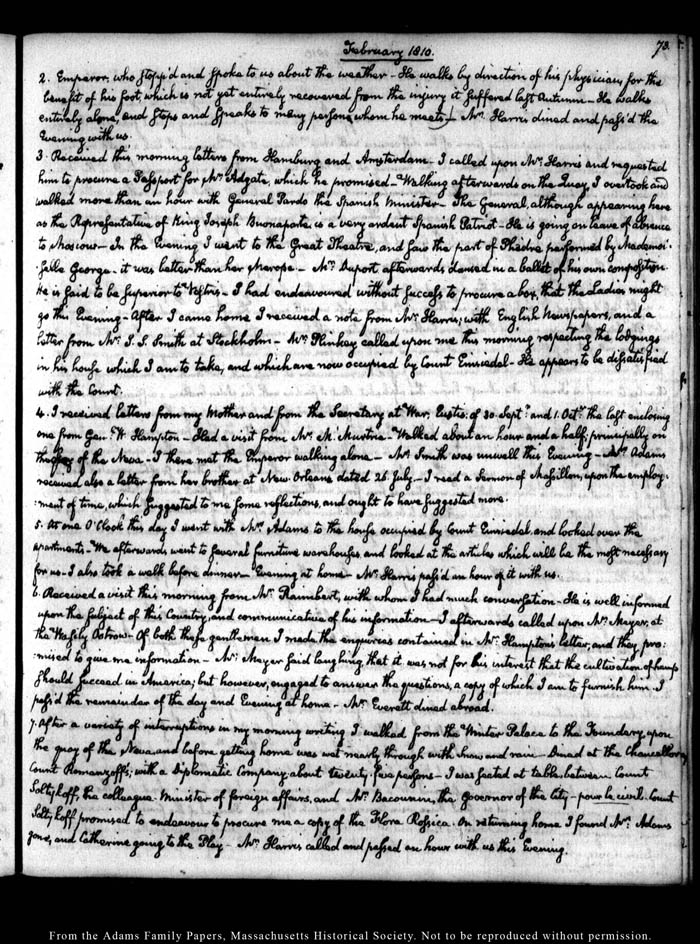 February 1810.
73.
2. Emperor, who stopp'd and spoke to us about the weather — He walks by direction of his physician, for the
benefit of his foot, which is not yet entirely recovered from the injury it suffered last Autumn — He walks
entirely alone, and stops and speaks to many persons whom he meets — Mr. Harris dined and pass'd the
Evening with us.
3. Received this morning letters from Hamburg and Amsterdam. I called upon Mr. Harris and requested
him to procure a Passport for Mr. Adgate, which he promised — Walking afterwards on the Quay, I overtook and
walked more than an hour with General Pardo the Spanish Minister — The General, although appearing here
as the Representative of King Joseph Buonaparte is a very ardent Spanish Patriot — He is going on leave of absence
to Moscow — In the Evening I went to the Great Theatre, and saw the part of Phèdre performed by Mademoi-
-selle George — it was better than her Merope — Mr. Duport afterwards danced in a ballet of his own composition.
He is said to be superior to Vestris — I had endeavoured without success to procure a box, that the Ladies might
go this Evening — After I came home I received a note from Mr. Harris, with English Newspapers, and a
letter from Mr. J. S. Smith at Stockholm — Mr. Plinkey called upon me this morning respecting the lodgings
in his house which I am to take, and which are now occupied by Count Einsiedel — He appears to be dissatisfied
with the Count.
4. I received letters from my Mother and from the Secretary at War, Eustis: of 30. Septr. and 1. Octr. the last enclosing
one from Genl. W. Hampton — Had a visit from Mr. McMurtrie — Walked about an hour and a half; principally on
the Quay of the Neva — I there met the Emperor walking alone — Mr. Smith was unwell this Evening — Mrs. Adams
received also a letter from her brother at New-Orleans dated 26. July — I read a Sermon of Massillon, upon the employ-
:ment of time, which suggested to me some reflections, and ought to have suggested more.
5. At one O'Clock this day I went with Mrs. Adams to the house occupied by Count Einsiedel, and looked over the
apartments — We afterwards went to several furniture warehouses and looked at the articles which will be the most necessary
for us — I also took a walk before dinner — Evening at home — Mr. Harris pass'd an hour of it with us.
6. Received a visit this morning from Mr. Raimbert, with whom I had much conversation — He is well informed
upon the subject of this Country, and communicative of his information — I afterwards called upon Mr. Meyer, at
the Wassily Ostrow — Of both these gentlemen I made the enquiries contained in Mr. Hampton's letter, and they pro:
:mised to give me information — Mr. Meyer said laughing that it was not for his interest that the cultivation of hemp
should succeed in America; but however, engaged to answer the questions, a copy of which I am to furnish him. I
pass'd the remainder of the day and Evening at home — Mr. Everett dined abroad.
7. After a variety of interruptions in my morning writing I walked from the Winter Palace to the Foundery, upon
the quay of the Neva and before getting home was wet nearly through with snow and rain — Dined at the Chancellor
Count Romanzoff's, with a Diplomatic Company, about twenty-five persons — I was seated at table between Count
Soltykoff, the colleague Minister of foreign affairs, and Mr. Bacounin, the Governor of the City — pour le civil. Count
Soltykoff promised to endeavour to procure me a copy of the Flora Rossica. On returning home I found Mrs. Adams
gone, and Catherine going to the Play — Mr. Harris called and passed an hour with us this Evening.
From the Adams Family Papers, Massachusetts Historical Society. Not to be reproduced without permission.